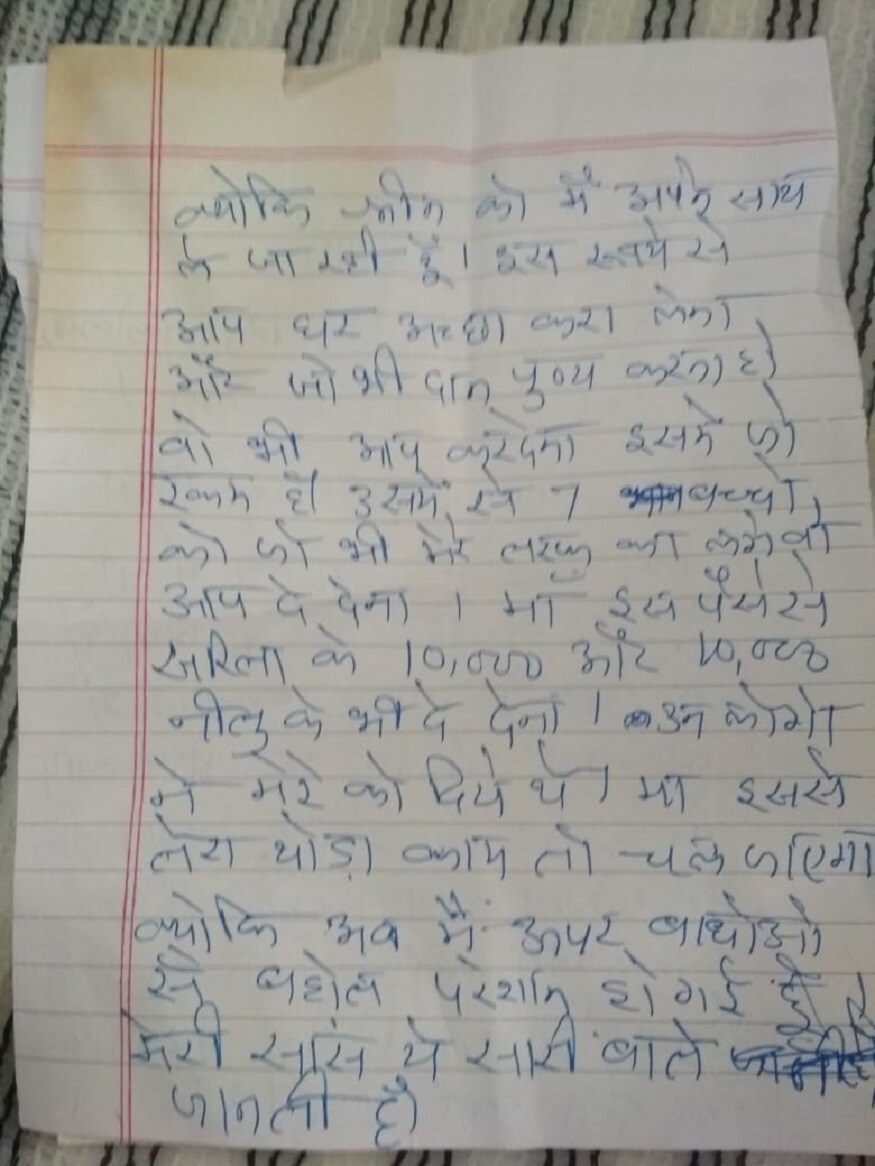 क्योकि को मैं अपने साथ
ले जा रही हूँ। इस रूपये से
आप घर अच्छा करा लेना
और जो भी दान पुण्य करना है
वो भी आप करदेना इसमें जो
रकम है उसमें से 7 बच्चो
को जो भी मेरे तरफ का लगे वो
आप दे देना । माँ इस पैसे से
सरिता के 10,000 और 10,000
नीलु के भी दे देना । उन लोगो
ने मेरे को दिये थे। मा इससे
तेरा थोड़ा काम तो चल जाएगा
क्योकि अब मैं ऊपर
से बहोत परेशान हो गई हूँ
मेरी सास ये सारी बाते
जानती है